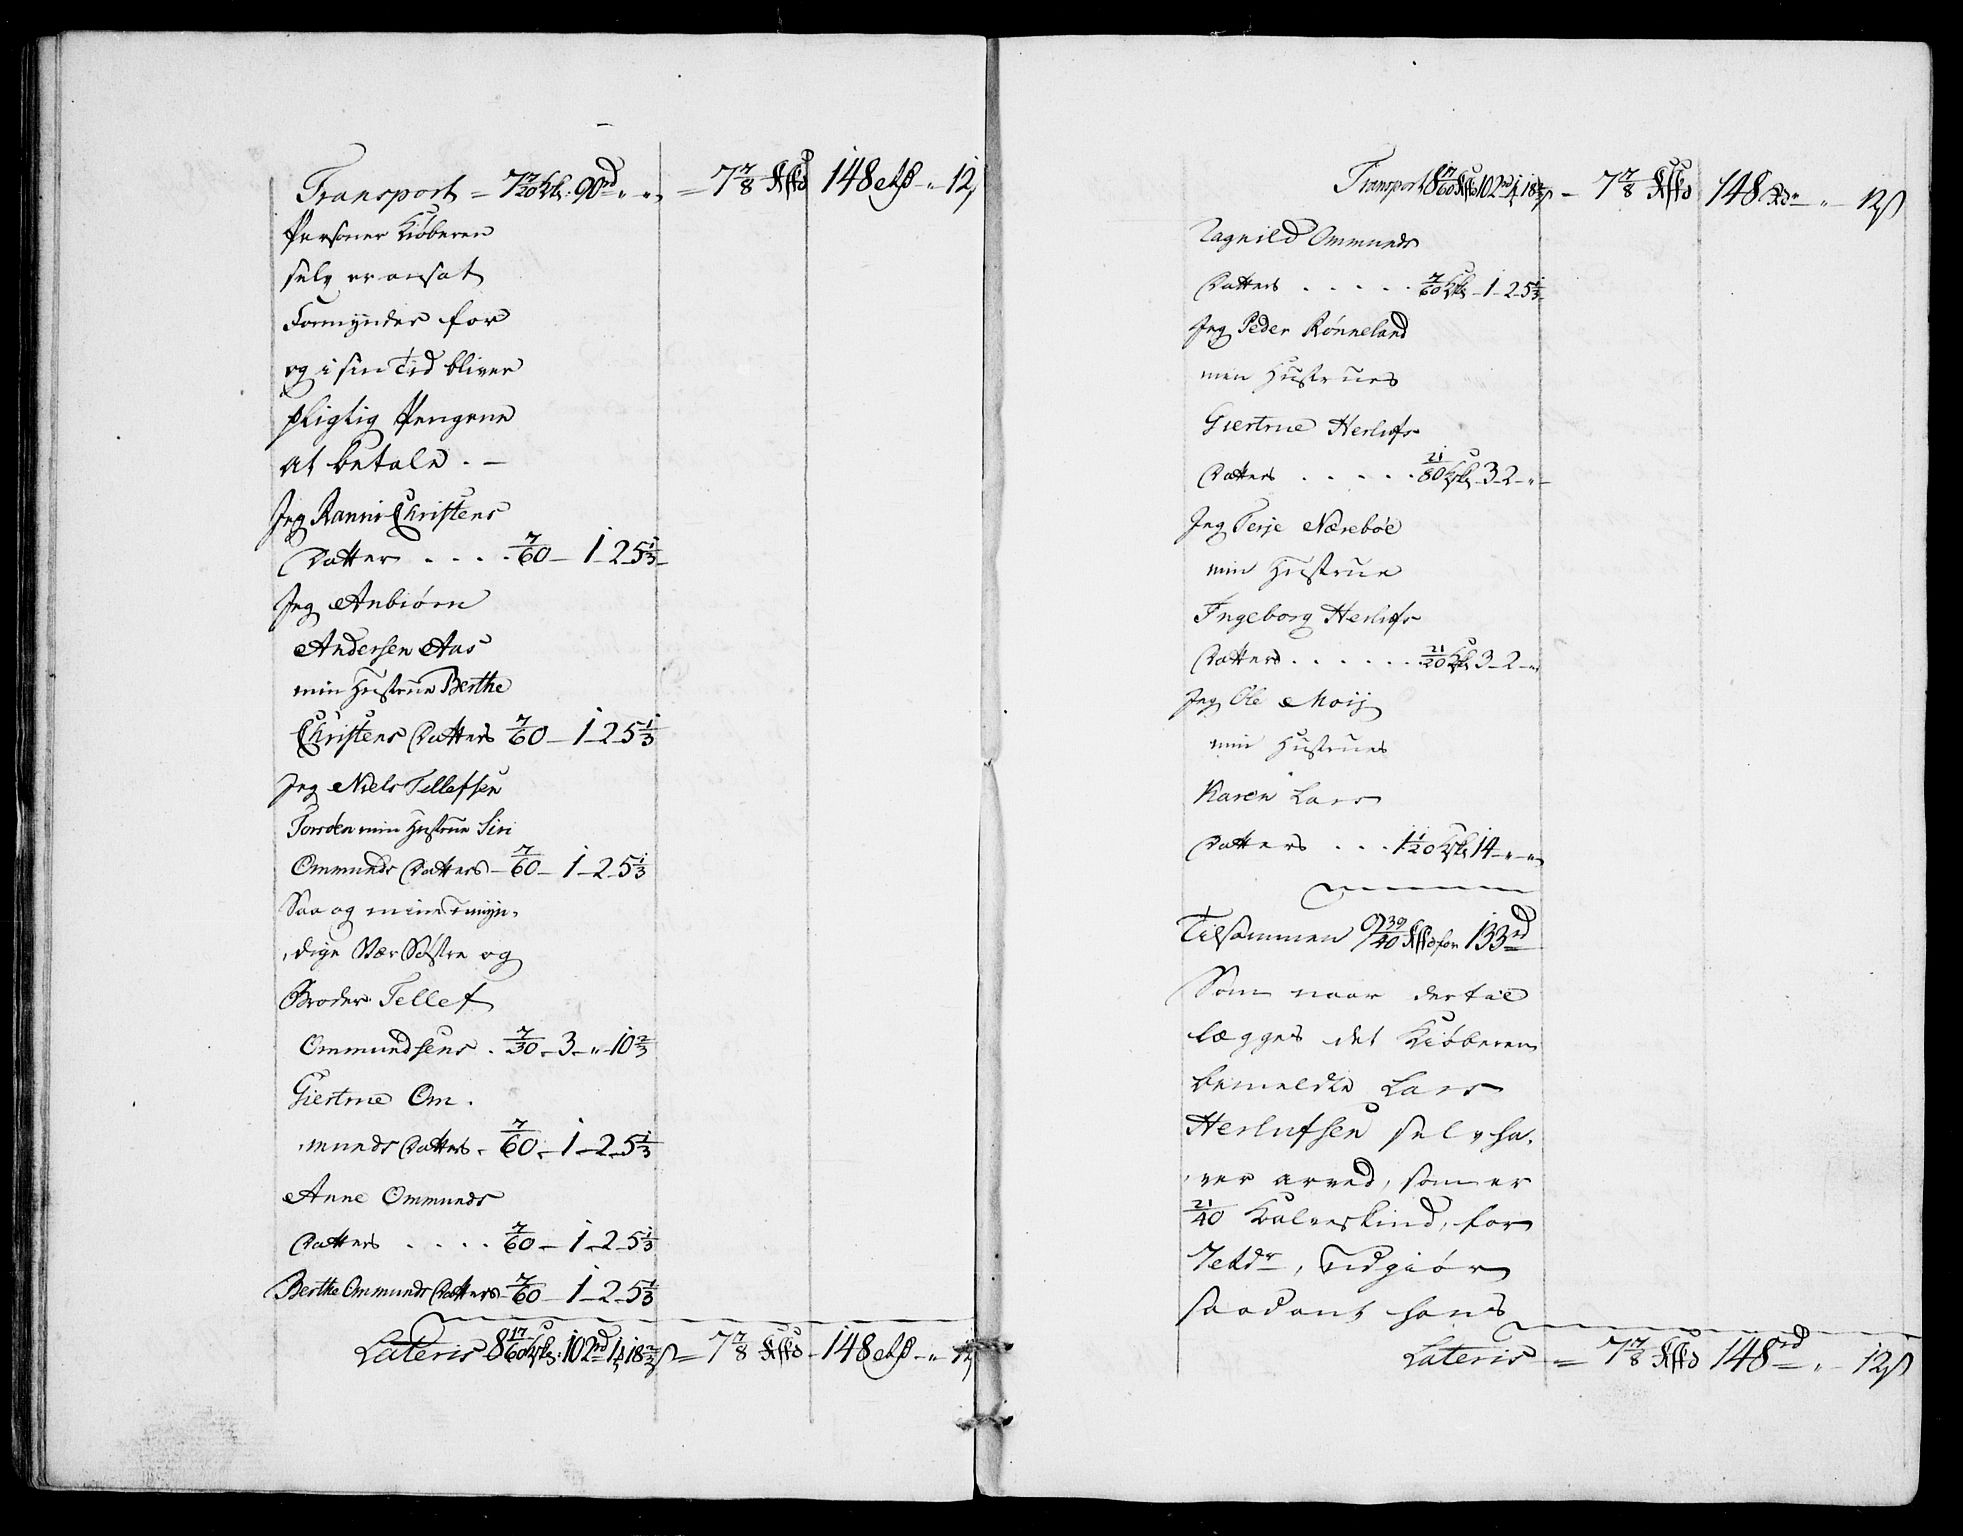 Transport = 7 7/20 Kls: 90rd „ „ = 7 7/8 Kskd 148 rdr „ 12
Personer Kiøberen
selv er ansat
Formynder for
og i sin Tid bliver
pligtig Pengene
at betale. —
Jeg Ranni Christens
Datter . . . . 7/60 — 1 — 2 — 5 1/3
Jeg Anbiørn
Andersen Aas
min Hustrue Berthe
Christens Datters 7/60 — 1 — 2 — 5 1/3
Jeg Niels Tellefsen
min Hustrue Siri
Ommunds Datters — 7/60 — 1 — 2 — 5 1/3
Saa og mine umyn-
dige Søstre og
Broder Tellef
Ommundsens . 7/30 — 3 — „ — 10 2/3
Giertrue Om-
munds Datters — 7/60 — 1 — 2 — 5 1/3
Anne Ommunds
Datters . . . . 7/60 — 1 — 2 — 5 1/3
Berthe Ommunds Datters — 7/60 — 1 — 2 — 5 1/3
Lateris 8 17/60 102rd 1 18 = 7 7/8 148 „ 12
Transport 8 17/60 102rd 1 18 = 7 7/8 148 rdr „ — 12ß
Ragnild Ommunds
Datters . . . . . 7/60 — 1 — 2 — 5 1/3
Jeg Peder Rønneland
min Hustrues
Giertrue Herlufs
Datters . . . . . 21/80 3 — 2 — „
Jeg Terje Nærebøe
min Hustrue
Ingeborg Herlufs
Datters . . . . . . 21/20 3 — 2 — „
Jeg Ole Moij
min Hustrues
Karen Lars
Datters . . . 1 1/20 14 — „ — „
Tilsammen 9 39/40 for 133rd
Som naar dertil
lægges det Kiøberen
bemeldte Lars
Herlufsen selv ha-
ver arved, som er
21/40 Kalveskind, for
7 rdr, udgiør
saadant hans
Lateris = 7 7/8 148rd „ — 12ß